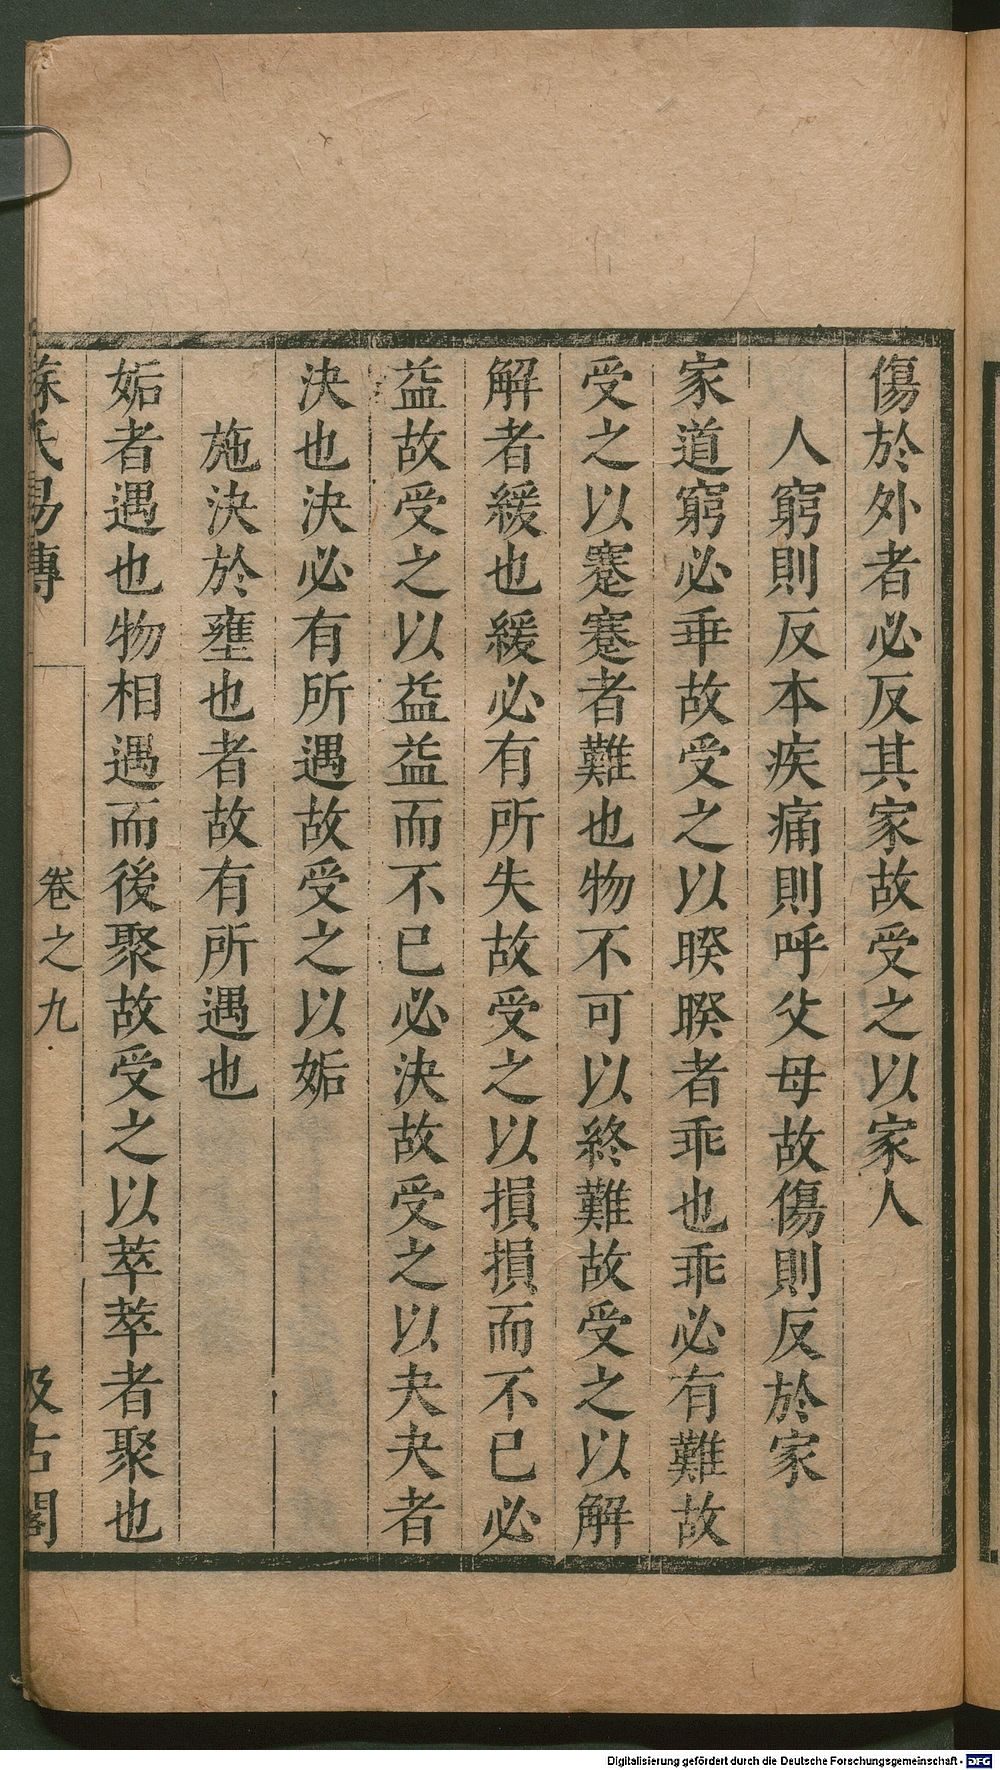 傷於外者必反其家故受之以家人
人窮則反本疾痛則呼父母故傷則反於家
家道窮必乖故受之以睽睽者乖也乖必有難故
受之以蹇蹇者難也物不可以終難故受之以解
解者緩也緩必有所失故受之以損損而不已必
益故受之以益益而不已必決故受之以夬夬者
決也決必有所遇故受之以姤
施決於壅也者故有所遇也
姤者遇也物相遇而後聚故受之以萃萃者聚也
蘇氏易傳
卷之九
汲古閣
Digitalisierung gefördert durch die Deutsche Forschungsgemeinschaft - DFG